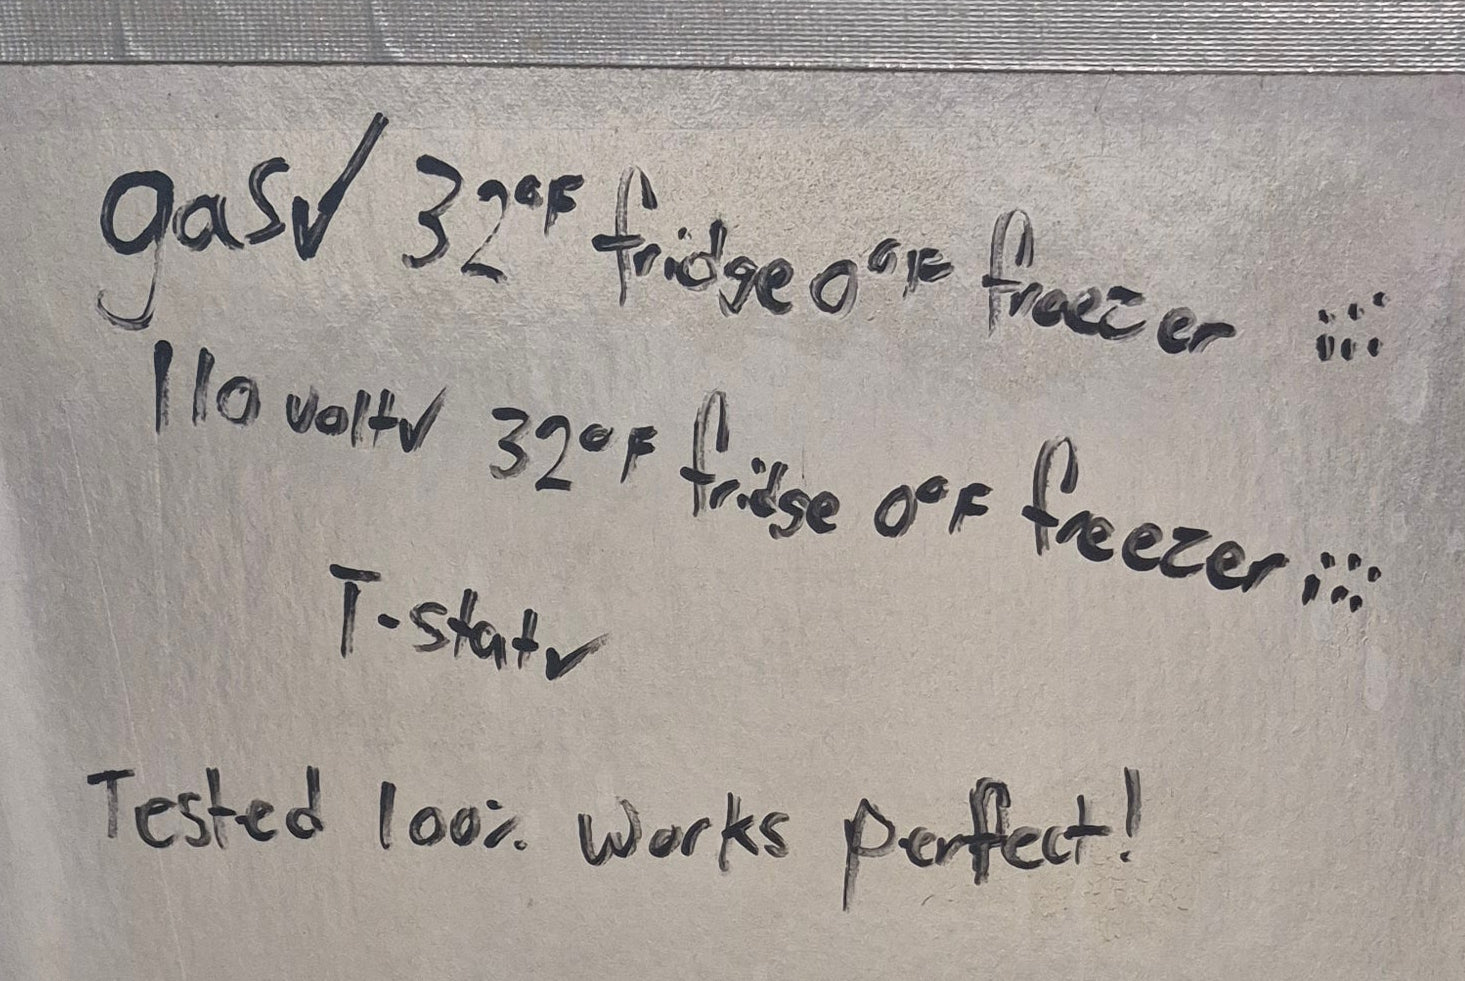 gas✓ 32°F fridge 0°F freezer
110 volt✓ 32°F fridge 0°F freezer
T-stat✓
Tested 100% works perfect!